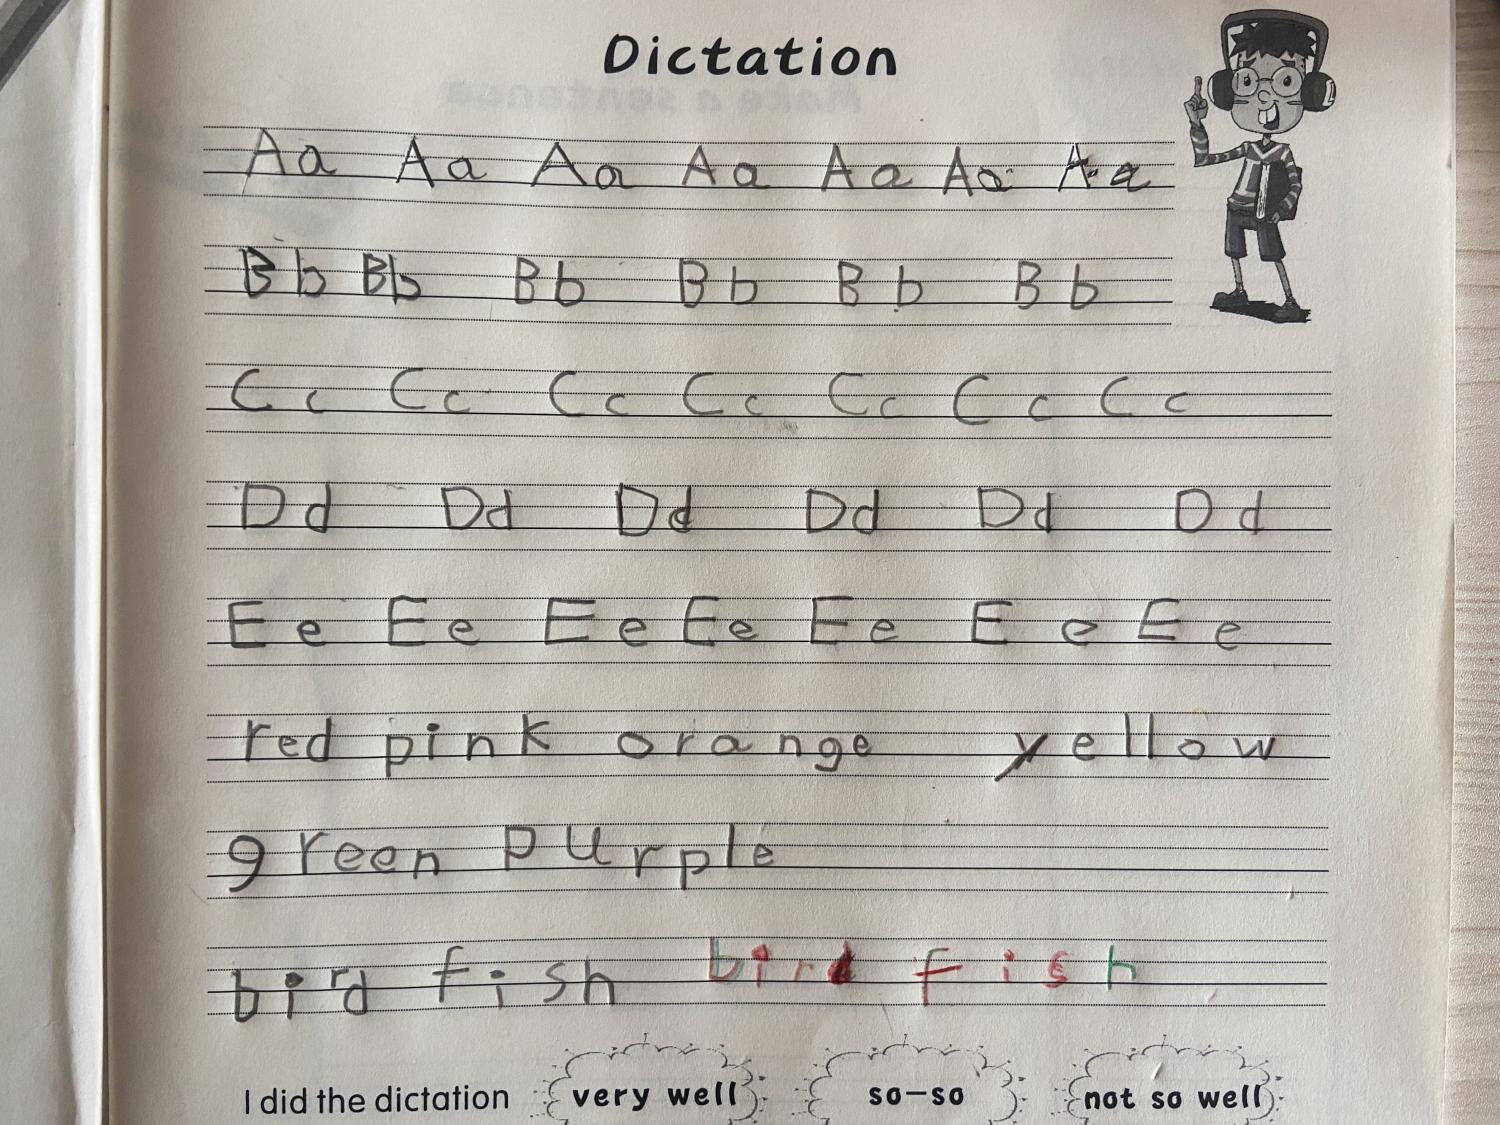 Dictation
Aa Aa Aa Aa Aa Aa Aa
Bb Bb Bb Bb Bb Bb
Cc Cc Cc Cc Cc Cc Cc
Dd Dd Dd Dd Dd Dd
Ee Ee Ee Ee Ee Ee Ee
red pink orange yellow
green purple
bird fish bird fish
I did the dictation very well so-so not so well